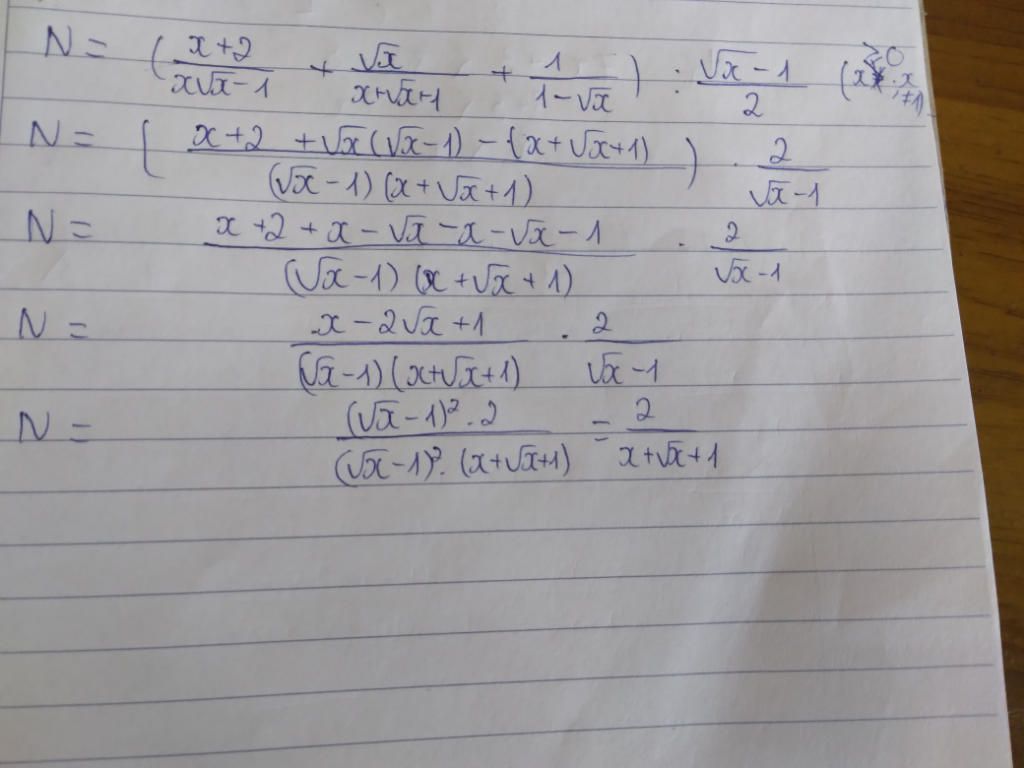 N = ( (x+2)/(x√x-1) + √x/(x+√x+1) + 1/(1-√x) ) : (√x-1)/2 (x≥0; x≠1)
N = ( (x+2+√x(√x-1)-(x+√x+1))/((√x-1)(x+√x+1)) ) . 2/(√x-1)
N = (x+2+x-√x-x-√x-1)/((√x-1)(x+√x+1)) . 2/(√x-1)
N = (x-2√x+1)/((√x-1)(x+√x+1)) . 2/(√x-1)
N = ((√x-1)².2)/((√x-1)².(x+√x+1)) = 2/(x+√x+1)